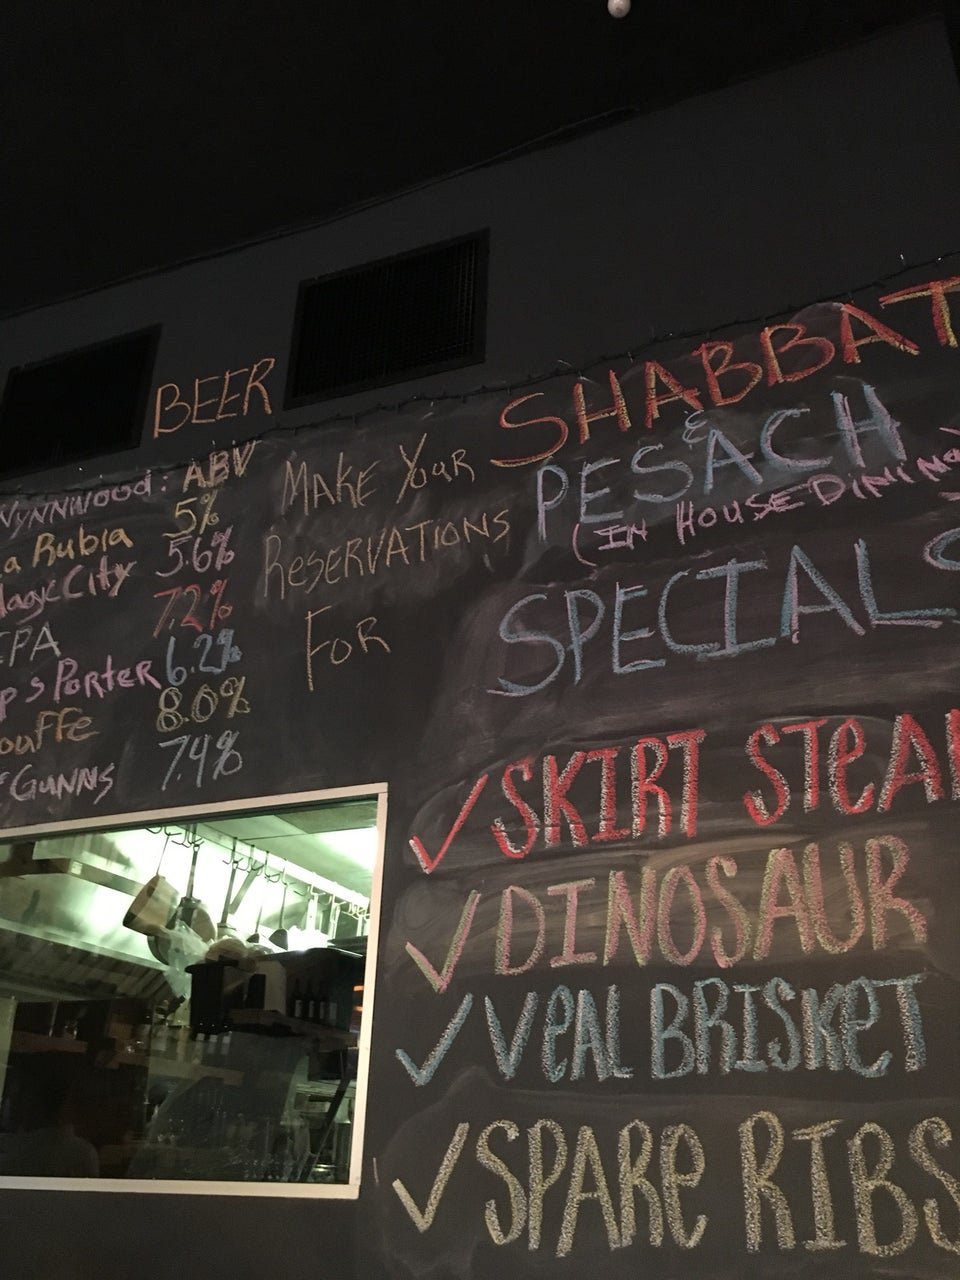 BEER
WYNNWOOD: ABV
a Rubia 5%
Magic City 5.6%
IPA 7.2%
p s Porter 6.2%
ouffe 8.0%
Gunns 7.4%
MAKE Your
RESERVATIONS
FOR
SHABBAT
& PESACH
(IN HOUSE DINING)
SPECIALS
✓ SKIRT STEAK
✓ DINOSAUR
✓ VeAL BRISKeT
✓ SPARe RIBS